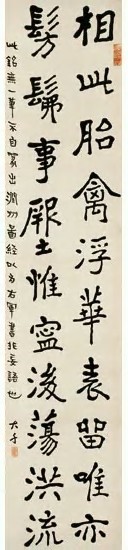 相此胎禽浮華表留唯亦
髣髴事厥土惟寧後蕩洪流
此銘無一筆不自篆出潤州圖經以為右軍書非妄語也
大千